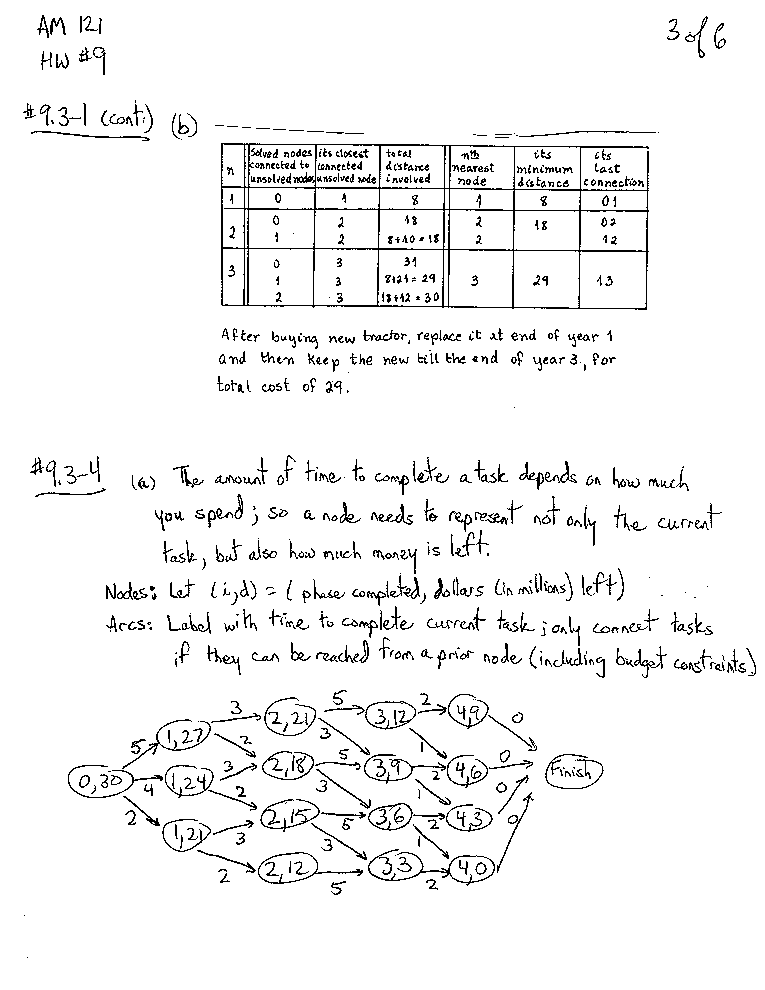 AM 121
3 of 6
HW #9
#9.3-1 (cont.) (b)
n | Solved nodes connected to unsolved nodes | its closest connected unsolved node | total distance involved | nth nearest node | its minimum distance | its last connection
1 | 0 | 1 | 8 | 1 | 8 | 01
2 | 0 | 2 | 18 | 2 | 18 | 02
1 | 2 | 8+10=18 | 2 | 12
3 | 0 | 3 | 31
1 | 3 | 8+21=29 | 3 | 29 | 13
2 | 3 | 18+12=30
After buying new tractor, replace it at end of year 1
and then keep the new till the end of year 3, for
total cost of 29.
#9.3-4 (a) The amount of time to complete a task depends on how much
you spend; so a node needs to represent not only the current
task, but also how much money is left.
Nodes: Let (i,d) = (phase completed, dollars (in millions) left)
Arcs: Label with time to complete current task; only connect tasks
if they can be reached from a prior node (including budget constraints)
3 5 2
1,27 2,21 3,12 4,9 0
5 2 3 1
0,30 4 1,24 3 2,18 5 3,9 2 4,6 0 Finish
2 2 3 1 0
1,21 3 2,15 5 3,6 2 4,3 0
2 3 1
2,12 5 3,3 2 4,0